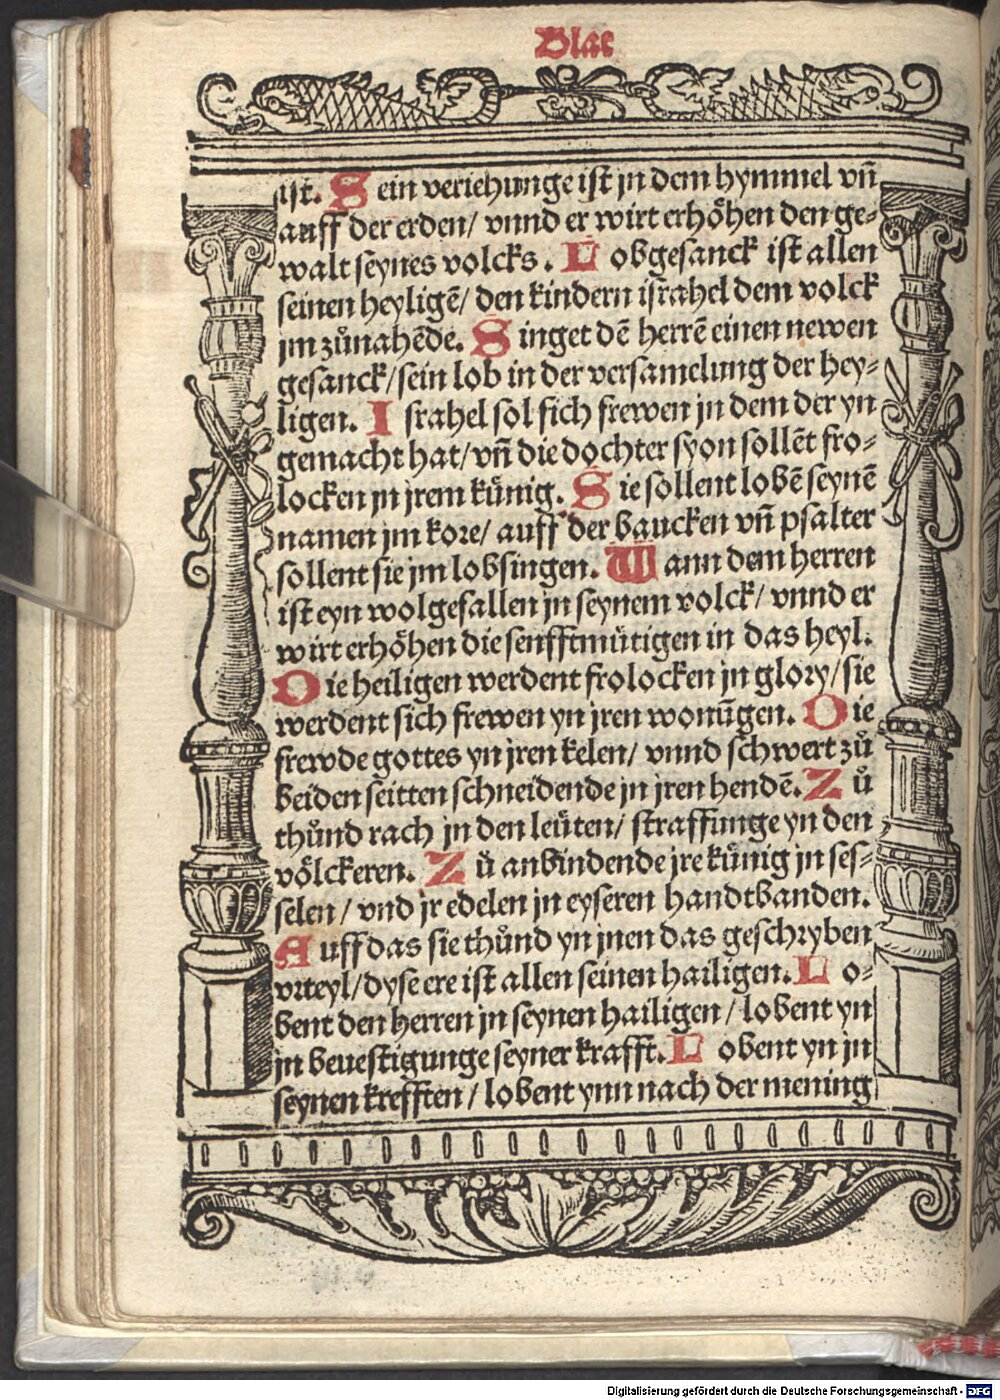 Blat
ist. Sein veriehunge ist jn dem hymmel vñ
auff der erden/ vnnd er wirt erhöhen den ge⸗
walt seynes volcks. Lobgesanck ist allen
seinen heyligē/ den kindern israhel dem volck
jm zůnahēde. Singet dē herrē einen newen
gesanck/ sein lob in der versamelung der hey⸗
ligen. Israhel sol sich frewen jn dem der yn
gemacht hat/ vñ die dochter syon sollēt fro⸗
locken jn jrem künig. Sie sollent lobē seynē
namen jm kore/ auff der baucken vñ psalter
sollent sie jm lobsingen. Wann dem herren
ist eyn wolgefallen jn seynem volck/ vnnd er
wirt erhöhen die senfftmütigen in das heyl.
Die heiligen werdent frolocken jn glory/ sie
werdent sich frewen yn jren wonūgen. Die
frewde gottes yn jren kelen/ vnnd schwert zů
beiden seitten schneidende jn jren hendē. Zů
thůnd rach jn den leüten/ straffunge yn den
völckeren. Zů anbindende jre künig jn ses⸗
selen/ vnd jr edelen jn eyseren handtbanden.
Auff das sie thůnd yn jnen das geschryben
vrteyl/ dyse ere ist allen seinen hailigen. Lo⸗
bent den herren jn seynen hailigen/ lobent yn
jn beuestigunge seyner krafft. Lobent yn jn
seynen krefften/ lobent ynn nach der mening
Digitalisierung gefördert durch die Deutsche Forschungsgemeinschaft - DFG